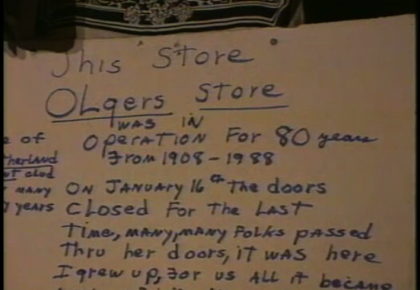 This "Store"
OLgers Store
WAS IN
OPERATION FOR 80 years
From 1908-1988
e of
therland
ON JANUARY 16th The doors
many
years
CLosed FoR The LAST
Time, MANY, MANY FoLKs pAssed
Thru her doors, iT WAS here
I grew up, For us ALL iT becAme